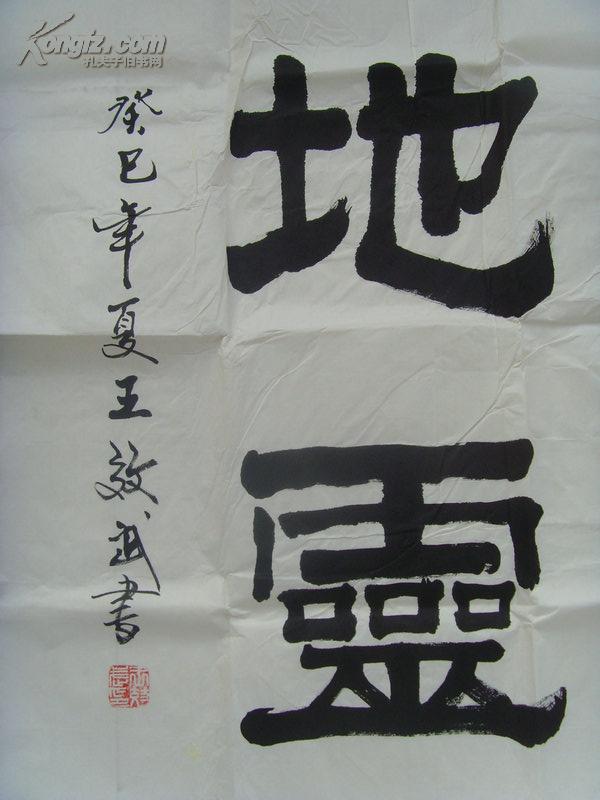 地靈
癸巳年夏王效武書
Kongfz.com
孔夫子旧书网